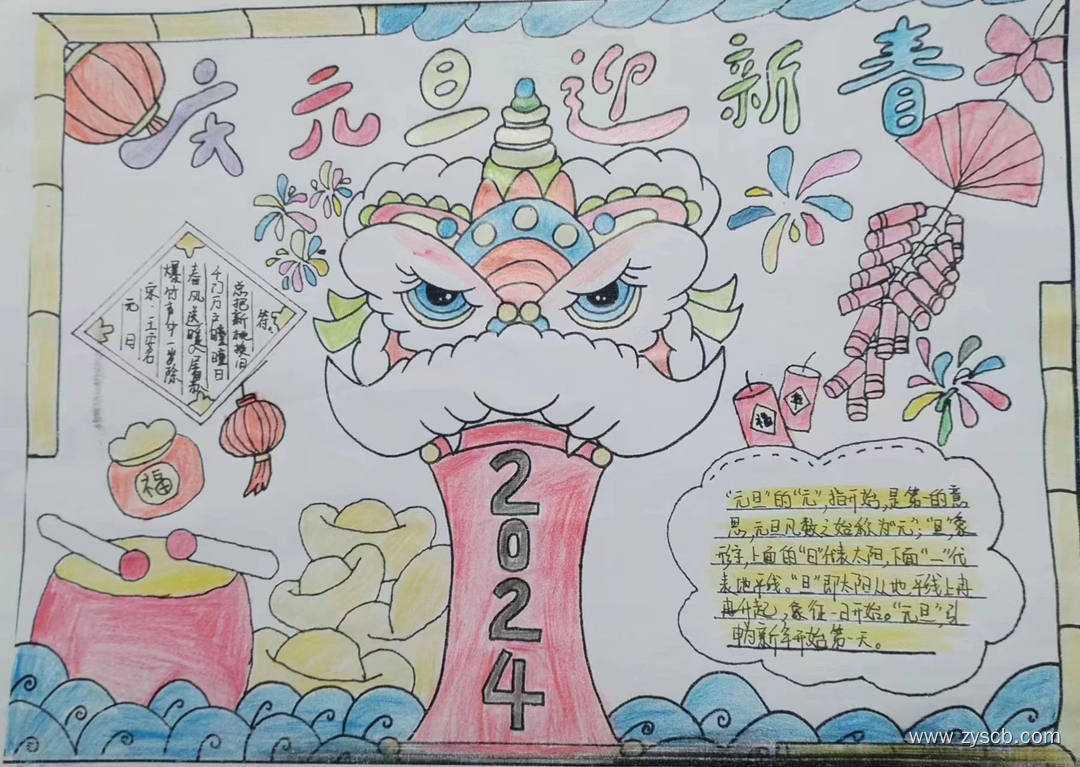 庆元旦迎新春
元日
宋·王安石
爆竹声中一岁除
春风送暖入屠苏
千门万户曈曈日
总把新桃换旧
符。
福
福
春
2024
“元旦”的“元”,指开始,是第一的意
思,元旦凡数之始称为“元”;“旦”,象
形字,上面的“日”代表太阳,下面“一”代
表地平线。“旦”即太阳从地平线上冉
冉升起,象征一日开始。“元旦”引
申为新年开始第一天。
www.zyscb.com